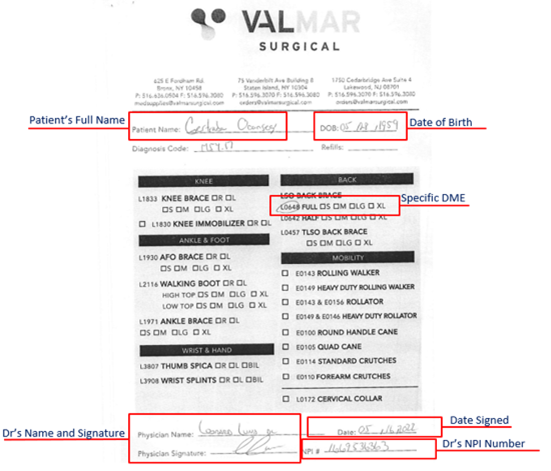 VALMAR
SURGICAL
625 E Fordham Rd.
Bronx, NY 10458
P: 516.636.0504 F: 516.596.3080
medsupplies@valmarsurgical.com
75 Vanderbilt Ave Building 8
Staten Island, NY 10304
P: 516.596.3070 F: 516.596.3080
orders@valmarsurgical.com
1750 Cedarbridge Ave Suite 4
Lakewood, NJ 08701
P: 516.596.3070 F: 516.596.3080
orders@valmarsurgical.com
Patient's Full Name
Patient Name:
DOB: 05 1959
Date of Birth
Diagnosis Code: M54.17
Refills:
KNEE
L1833 KNEE BRACE □R □L
□S □M □LG □ XL
□ L1830 KNEE IMMOBILIZER □R □L
ANKLE & FOOT
L1930 AFO BRACE □R □L
□S □M □LG □ XL
L2116 WALKING BOOT □R □L
HIGH TOP □S □M □LG □ XL
LOW TOP □S □M □LG □ XL
L1971 ANKLE BRACE □R □L
□S □M □LG □ XL
WRIST & HAND
L3807 THUMB SPICA □R □L □BIL
L3908 WRIST SPLINTS □R □L □BIL
BACK
LSO BACK BRACE
L0648 FULL □S □M □LG □ XL
Specific DME
L0642 HALF □S □M □LG □ XL
L0457 TLSO BACK BRACE
□S □M □LG □ XL
MOBILITY
□ E0143 ROLLING WALKER
□ E0149 HEAVY DUTY ROLLING WALKER
□ E0143 & E0156 ROLLATOR
□ E0149 & E0146 HEAVY DUTY ROLLATOR
□ E0100 ROUND HANDLE CANE
□ E0105 QUAD CANE
□ E0114 STANDARD CRUTCHES
□ E0110 FOREARM CRUTCHES
□ L0172 CERVICAL COLLAR
Date Signed
Dr's Name and Signature
Physician Name: Leonard
Date: 05 2022
Dr's NPI Number
Physician Signature:
NPI # 1669536363